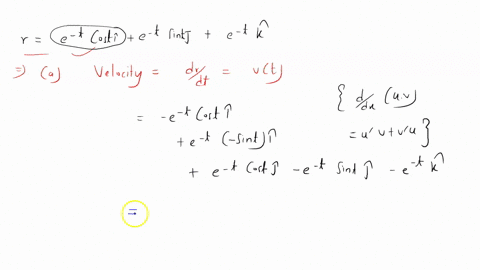 r = e^{-t} Cost î + e^{-t} Sint ĵ + e^{-t} k̂
⇒ (a) Velocity = dr/dt = v(t)
= -e^{-t} Cost î
+ e^{-t} (-Sint) î
+ e^{-t} Cost ĵ - e^{-t} Sint ĵ - e^{-t} k̂
{ d/dx (u.v)
= u' v + v' u }
=